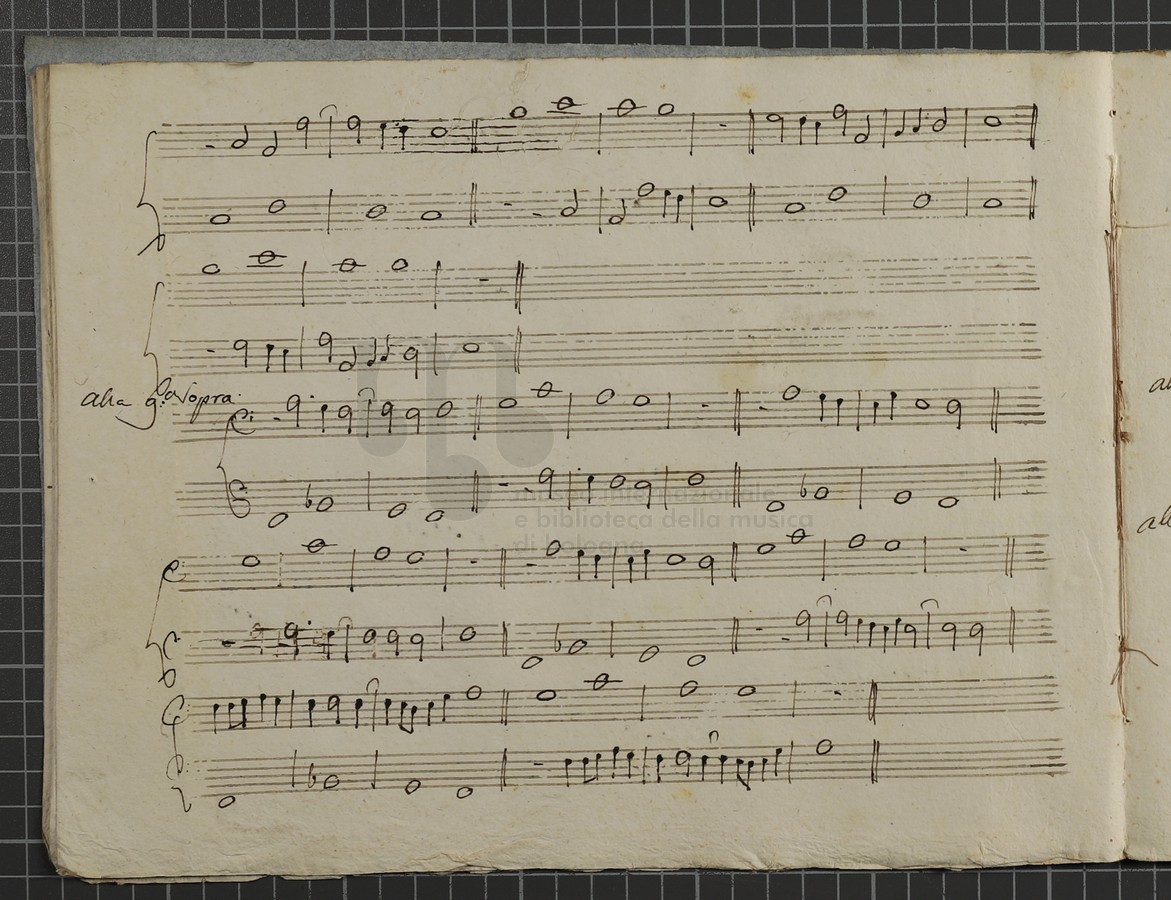 alla 9.ª Sopra.
museo internazionale
e biblioteca della musica
di bologna
al
al